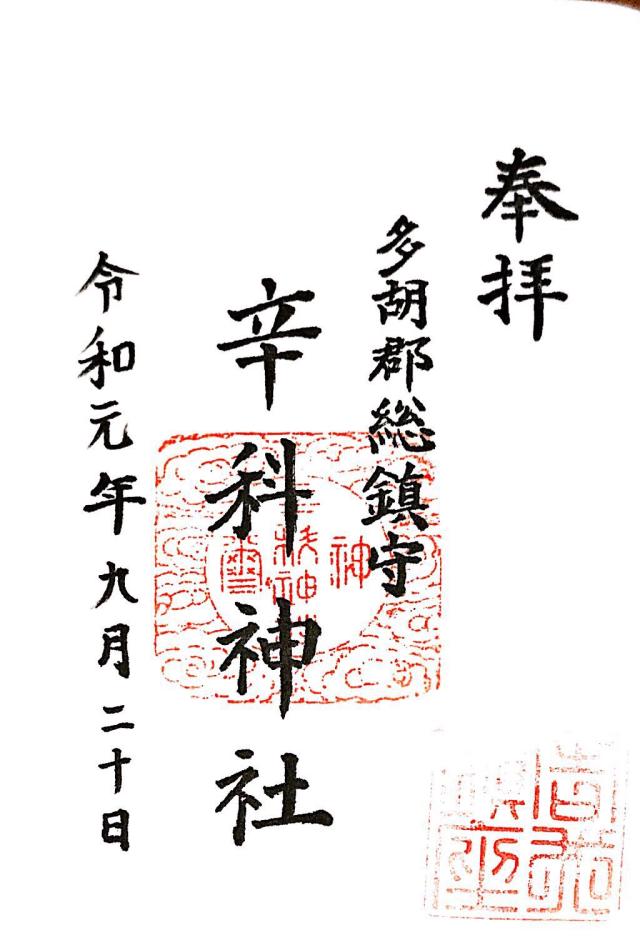 奉拝
多胡郡総鎮守
辛科神社
令和元年九月二十日